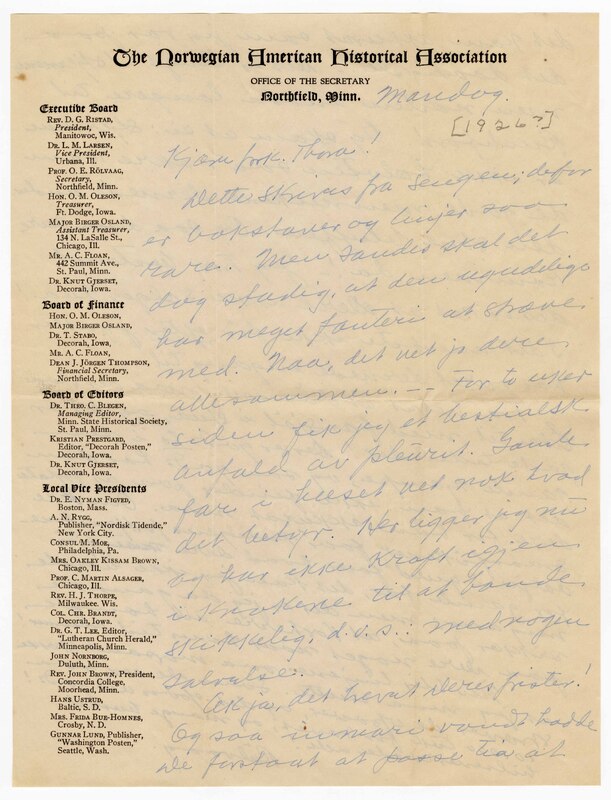 The Norwegian American Historical Association
OFFICE OF THE SECRETARY
Northfield, Minn.
Mandag.
[1926?]
Executive Board
REV. D. G. RISTAD,
President,
Manitowoc, Wis.
DR. L. M. LARSEN,
Vice President,
Urbana, Ill.
PROF. O. E. RÖLVAAG,
Secretary,
Northfield, Minn.
HON. O. M. OLESON,
Treasurer,
Ft. Dodge, Iowa.
MAJOR BIRGER OSLAND,
Assistant Treasurer,
134 N. LaSalle St.,
Chicago, Ill.
MR. A. C. FLOAN,
442 Summit Ave.,
St. Paul, Minn.
DR. KNUT GJERSET,
Decorah, Iowa.
Board of Finance
HON. O. M. OLESON,
MAJOR BIRGER OSLAND,
DR. T. STABO,
Decorah, Iowa,
MR. A. C. FLOAN,
DEAN J. JÖRGEN THOMPSON,
Financial Secretary,
Northfield, Minn.
Board of Editors
DR. THEO. C. BLEGEN,
Managing Editor,
Minn. State Historical Society,
St. Paul, Minn.
KRISTIAN PRESTGARD,
Editor, "Decorah Posten,"
Decorah, Iowa.
DR. KNUT GJERSET,
Decorah, Iowa.
Local Vice Presidents
DR. E. NYMAN FIGVED,
Boston, Mass.
A. N. RYGG,
Publisher, "Nordisk Tidende,"
New York City.
CONSUL M. MOE,
Philadelphia, Pa.
MRS. OAKLEY KISSAM BROWN,
Chicago, Ill.
PROF. C. MARTIN ALSAGER,
Chicago, Ill.
REV. H. J. THORPE,
Milwaukee. Wis.
COL. CHR. BRANDT,
Decorah, Iowa.
DR. G. T. LEE, Editor,
"Lutheran Church Herald,"
Minneapolis, Minn.
JOHN NORNBORG,
Duluth, Minn.
REV. JOHN BROWN, President,
Concordia College,
Moorhead, Minn.
HANS USTRUD,
Baltic, S. D.
MRS. FRIDA BUE-HOMNES,
Crosby, N. D.
GUNNAR LUND, Publisher,
"Washington Posten,"
Seattle, Wash.
Kjære frøk. Thora!
Dette skrives fra sengen; defor
er bokstaver og linjer saa
rare. Men sandis skal det
dog stadig, at den ugudelige
har meget fanteri at stræve
med. Naa, det vet jo dere
allesammen. — For to uker
siden fik jeg et bestialsk
anfald av pleurit. Gamle
far i huset vet nok hvad
det betyr. Her ligger jeg nu
og har ikke kraft igjen
i krokene til at bande
skikkelig, d.v.s.: med nogen
salvelse.
Ak ja, det
Og saa vondt hadde
De forstaat at passe at